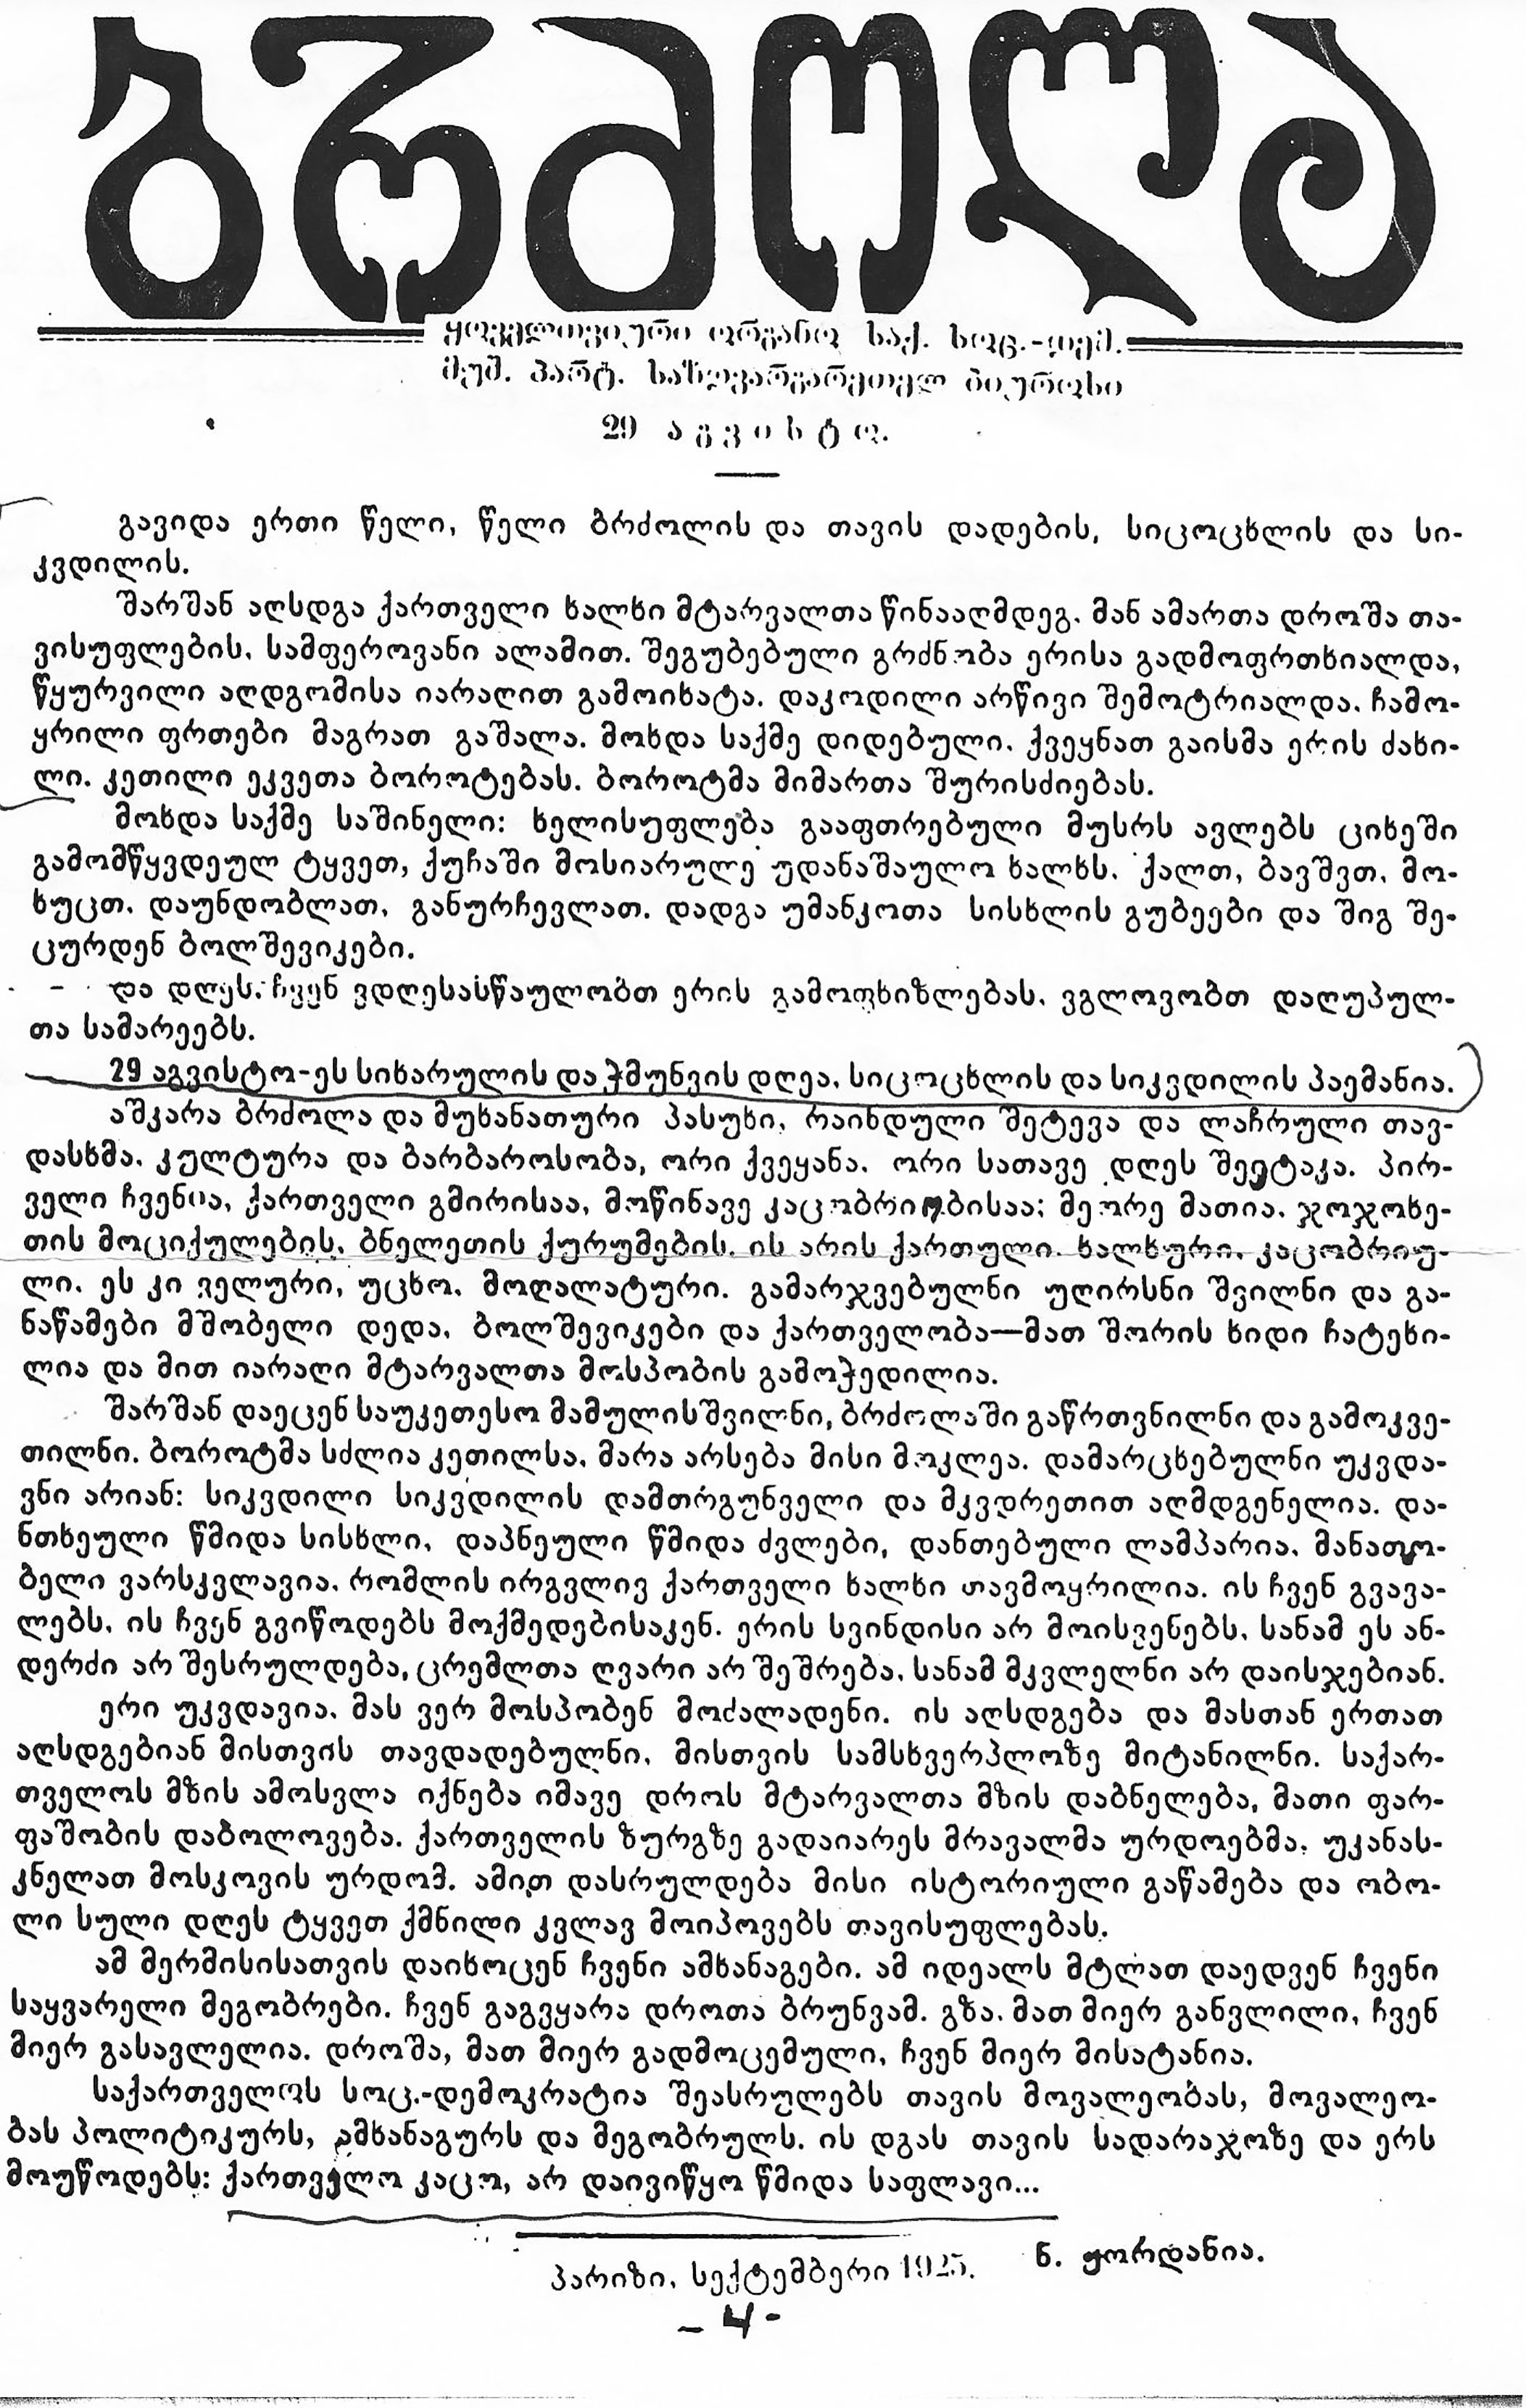 ბრძოლა
ყოველთვიური ორგანო საქ. სოც.-დემ.
მუშ. პარტ. საზღვარგარეთელ ბიუროსი
29 აგვისტო.
გავიდა ერთი წელი, წელი ბრძოლის და თავის დადების, სიცოცხლის და სი-
კვდილის.
შარშან აღსდგა ქართველი ხალხი მტარვალთა წინააღმდეგ. მან ამართა დროშა თა-
ვისუფლების, სამფეროვანი ალამით. შეგუბებული გრძნობა ერისა გადმოფრთხიალდა,
წყურვილი აღდგომისა იარაღით გამოიხატა. დაკოდილი არწივი შემოტრიალდა, ჩამო-
ყრილი ფრთები მაგრათ გაშალა. მოხდა საქმე დიდებული. ქვეყნათ გაისმა ერის ძახი-
ლი. კეთილი ეკვეთა ბოროტებას. ბოროტმა მიმართა შურისძიებას.
მოხდა საქმე საშინელი: ხელისუფლება გააფთრებული მუსრს ავლებს ციხეში
გამომწყვდეულ ტყვეთ, ქუჩაში მოსიარულე უდანაშაულო ხალხს, ქალთ, ბავშვთ, მო-
ხუცთ, დაუნდობლათ, განურჩევლათ. დადგა უმანკოთა სისხლის გუბეები და შიგ შე-
ცურდენ ბოლშევიკები.
და დღეს, ჩვენ ვდღესასწაულობთ ერის გამოფხიზლებას, ვგლოვობთ დაღუპულ-
თა სამარეებს.
29 აგვისტო-ეს სიხარულის და ჭმუნვის დღეა, სიცოცხლის და სიკვდილის პაემანია.
აშკარა ბრძოლა და მუხანათური პასუხი, რაინდული შეტევა და ლაჩრული თავ-
დასხმა, კულტურა და ბარბაროსობა, ორი ქვეყანა, ორი სათავე დღეს შეეტაკა. პირ-
ველი ჩვენია, ქართველი გმირისაა, მოწინავე კაცობრიობისაა; მეორე მათია, ჯოჯოხე-
თის მოციქულების, ბნელეთის ქურუმების. ის არის ქართული, ხალხური, კაცობრიუ-
ლი. ეს კი ველური, უცხო, მოღალატური. გამარჯვებულნი უღირსნი შვილნი და გა-
ნაწამები მშობელი დედა, ბოლშევიკები და ქართველობა—მათ შორის ხიდი ჩატეხი-
ლია და მით იარაღი მტარვალთა მოსპობის გამოჭედილია.
შარშან დაეცენ საუკეთესო მამულისშვილნი, ბრძოლაში გაწრთვნილნი და გამოკვე-
თილნი. ბოროტმა სძლია კეთილსა, მარა არსება მისი მოკლეა. დამარცხებულნი უკვდა-
ვნი არიან: სიკვდილი სიკვდილის დამთრგუნველი და მკვდრეთით აღმდგენელია. და-
ნთხეული წმიდა სისხლი, დაპნეული წმიდა ძვლები, დანთებული ლამპარია, მანათო-
ბელი ვარსკვლავია, რომლის ირგვლივ ქართველი ხალხი თავმოყრილია. ის ჩვენ გვავა-
ლებს, ის ჩვენ გვიწოდებს მოქმედებისაკენ. ერის სვინდისი არ მოისვენებს, სანამ ეს ან-
დერძი არ შესრულდება, ცრემლთა ღვარი არ შეშრება, სანამ მკვლელნი არ დაისჯებიან.
ერი უკვდავია. მას ვერ მოსპობენ მოძალადენი. ის აღსდგება და მასთან ერთათ
აღსდგებიან მისთვის თავდადებულნი, მისთვის სამსხვერპლოზე მიტანილნი. საქარ-
თველოს მზის ამოსვლა იქნება იმავე დროს მტარვალთა მზის დაბნელება, მათი ფარ-
ფაშობის დაბოლოვება. ქართველის ზურგზე გადაიარეს მრავალმა ურდოებმა, უკანას-
კნელათ მოსკოვის ურდომ. ამით დასრულდება მისი ისტორიული გაწამება და ობო-
ლი სული დღეს ტყვეთ ქმნილი კვლავ მოიპოვებს თავისუფლებას.
ამ მერმისისათვის დაიხოცენ ჩვენი ამხანაგები. ამ იდეალს მტლათ დაედვენ ჩვენი
საყვარელი მეგობრები. ჩვენ გაგვყარა დროთა ბრუნვამ. გზა, მათ მიერ განვლილი, ჩვენ
მიერ გასავლელია. დროშა, მათ მიერ გადმოცემული, ჩვენ მიერ მისატანია.
საქართველოს სოც.-დემოკრატია შეასრულებს თავის მოვალეობას, მოვალეო-
ბას პოლიტიკურს, ამხანაგურს და მეგობრულს. ის დგას თავის სადარაჯოზე და ერს
მოუწოდებს: ქართველო კაცო, არ დაივიწყო წმიდა საფლავი...
ნ. ჟორდანია.
პარიზი, სექტემბერი 1925.
- 4 -